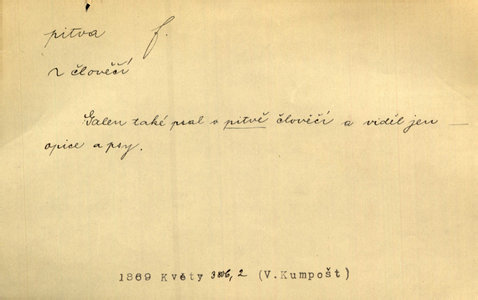 pitva f.
člověčí
Galen také psal o pitvě člověčí a viděl jen —
opice a psy.
1869 Květy 386, 2 (V. Kumpošt)